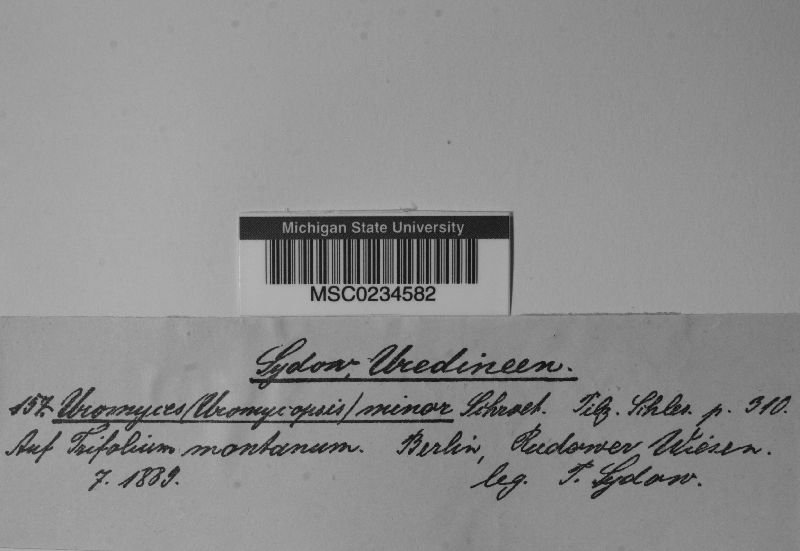 Michigan State University
MSC0234582
Sydow, Uredineen.
157. Uromyces (Uromycopsis) minor Schroet. Pilz. Schles. p. 310.
Auf Trifolium montanum. Berlin, Rudower Wiesen.
7. 1889. leg. P. Sydow.